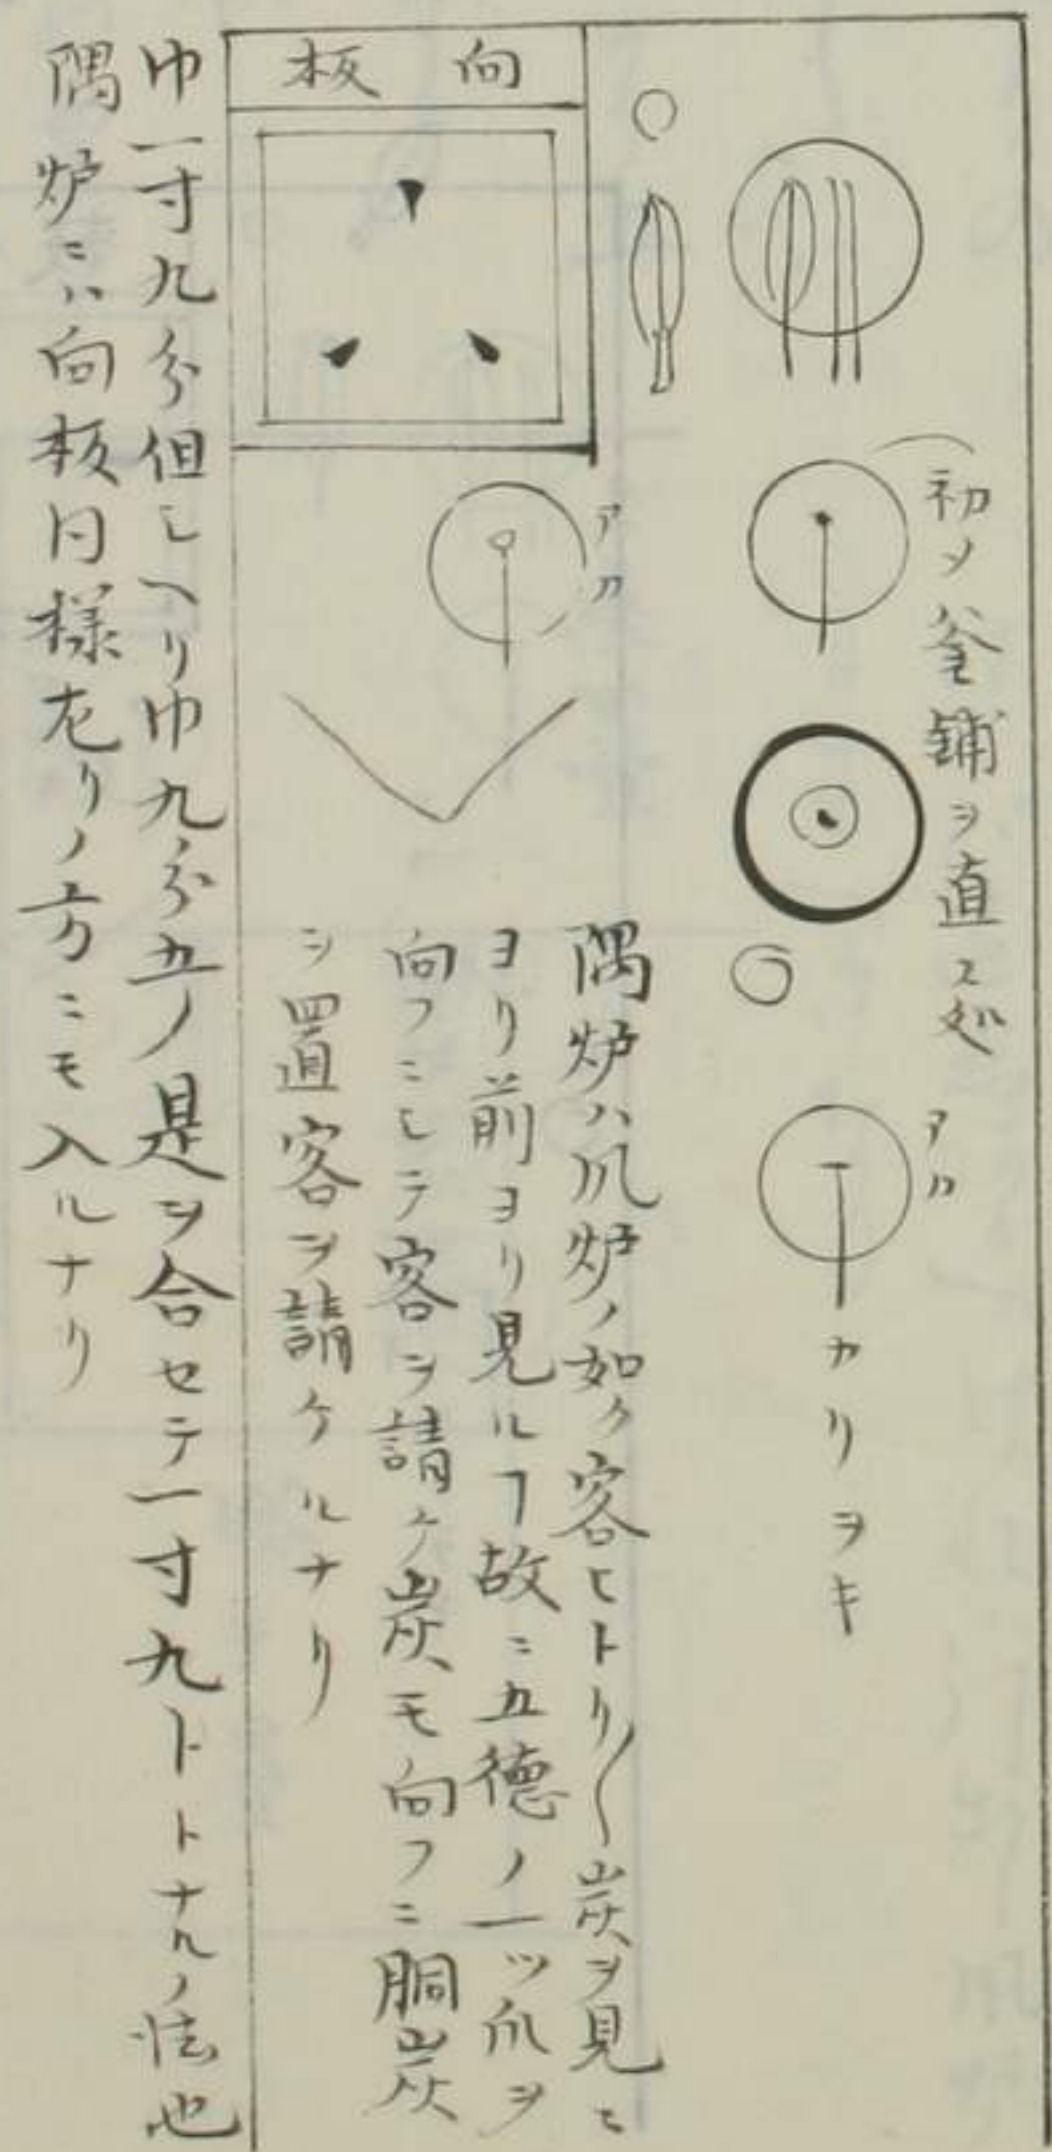 初ノ釜鋪ヲ直ス処
アカ
カリヲキ
向板
アカ
隅炉ハ風炉ノ如ク客ヒトリ〱炭ヲ見ニ
ヨリ前ヨリ見ルヿ故ニ五徳ノ一ッ爪ヲ
向フニシテ客ヲ請ケ炭モ向フニ胴炭
ヲ置客ヲ請ケルナリ
巾一寸九分但シヘリ巾九分五ノ是ヲ合セテ一寸九トトナルノ法也
隅炉ニハ向板同様左リノ方ニモ入ルナリ